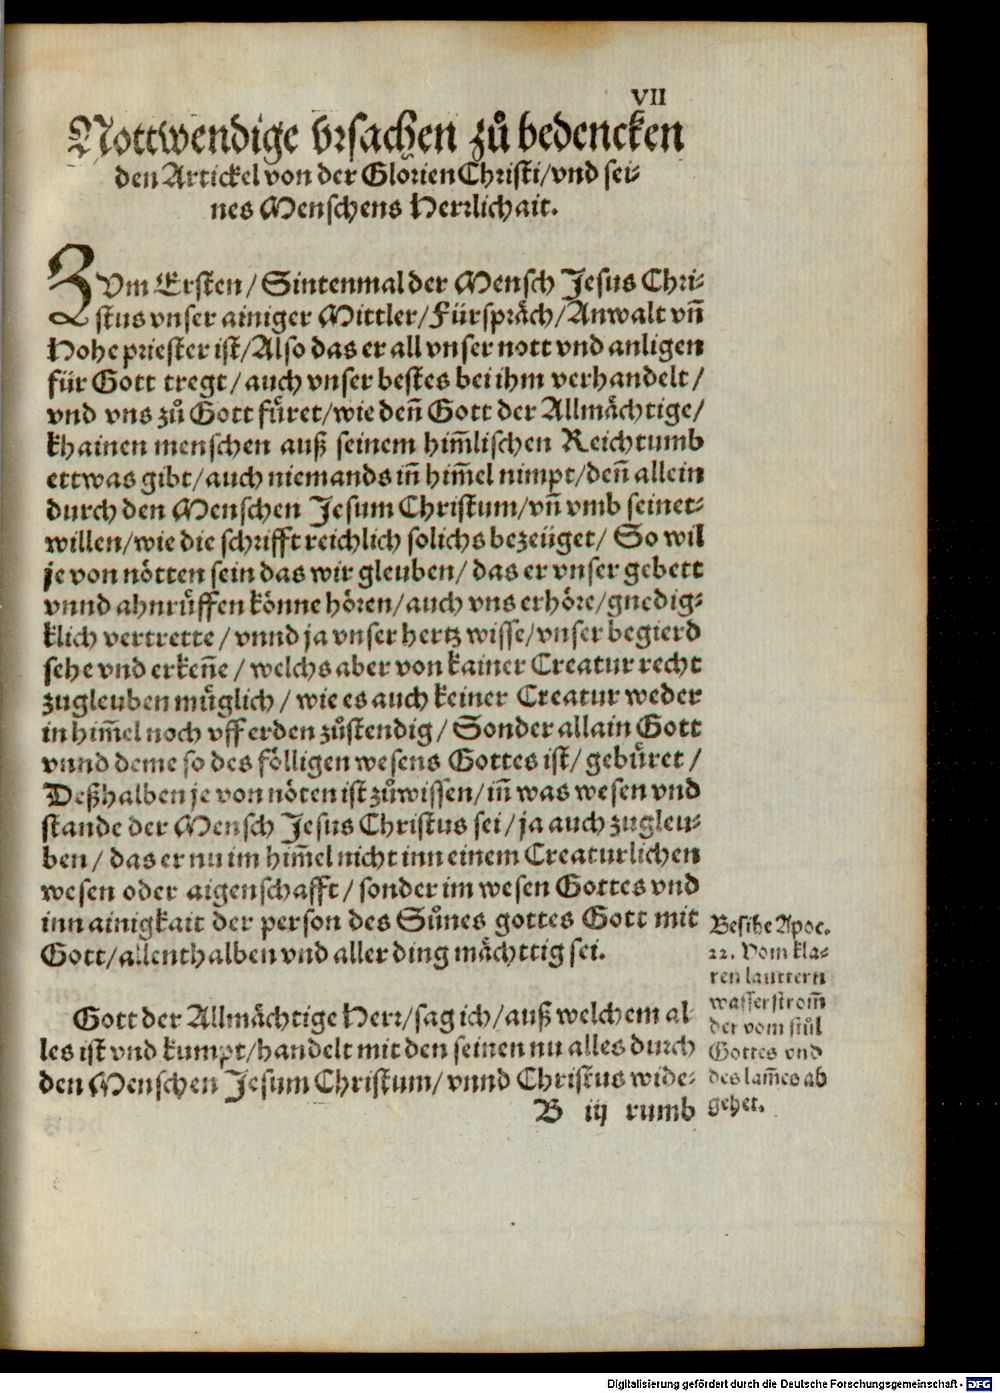 VII
Nottwendige vrsachen zů bedencken
den Artickel von der Glorien Christi/vnd sei-
nes Menschens Herrlichait.
ZVm Ersten/ Sintenmal der Mensch Jesus Chri-
stus vnser ainiger Mittler/Fürspräch/Anwalt vñ
Hohe priester ist/Also das er all vnser nott vnd anligen
für Gott tregt/ auch vnser bestes bei ihm verhandelt/
vnd vns zů Gott füret/wie deñ Gott der Allmächtige/
khainen menschen auß seinem him̃lischen Reichtumb
ettwas gibt/auch niemands iñ him̃el nimpt/deñ allein
durch den Menschen Jesum Christum/vñ vmb seinet-
willen/wie die schrifft reichlich solichs bezeüget/ So wil
je von nötten sein das wir gleuben/ das er vnser gebett
vnnd ahnrüffen könne hören/auch vns erhöre/gnedig-
klich vertrette/ vnnd ja vnser hertz wisse/vnser begierd
sehe vnd erkeñe/ welchs aber von kainer Creatur recht
zugleuben müglich/ wie es auch keiner Creatur weder
in him̃el noch vff erden zůstendig/ Sonder allain Gott
vnnd deme so des fölligen wesens Gottes ist/ gebüret/
Deßhalben je von nöten ist zůwissen/ iñ was wesen vnd
stande der Mensch Jesus Christus sei/ ja auch zugleu-
ben/ das er nu im him̃el nicht inn einem Creaturlichen
wesen oder aigenschafft/ sonder im wesen Gottes vnd
inn ainigkait der person des Sůnes gottes Gott mit
Gott/allenthalben vnd aller ding mächttig sei.
Besihe Apoc.
22. Vom kla-
ren lauttern
wasserstrom̃
der vom stůl
Gottes vnd
des lam̃es ab
gehet.
Gott der Allmächtige Herr/sag ich/auß welchem al
les ist vnd kumpt/handelt mit den seinen nu alles durch
den Menschen Jesum Christum/ vnnd Christus wide-
B iij rumb
Digitalisierung gefördert durch die Deutsche Forschungsgemeinschaft - DFG